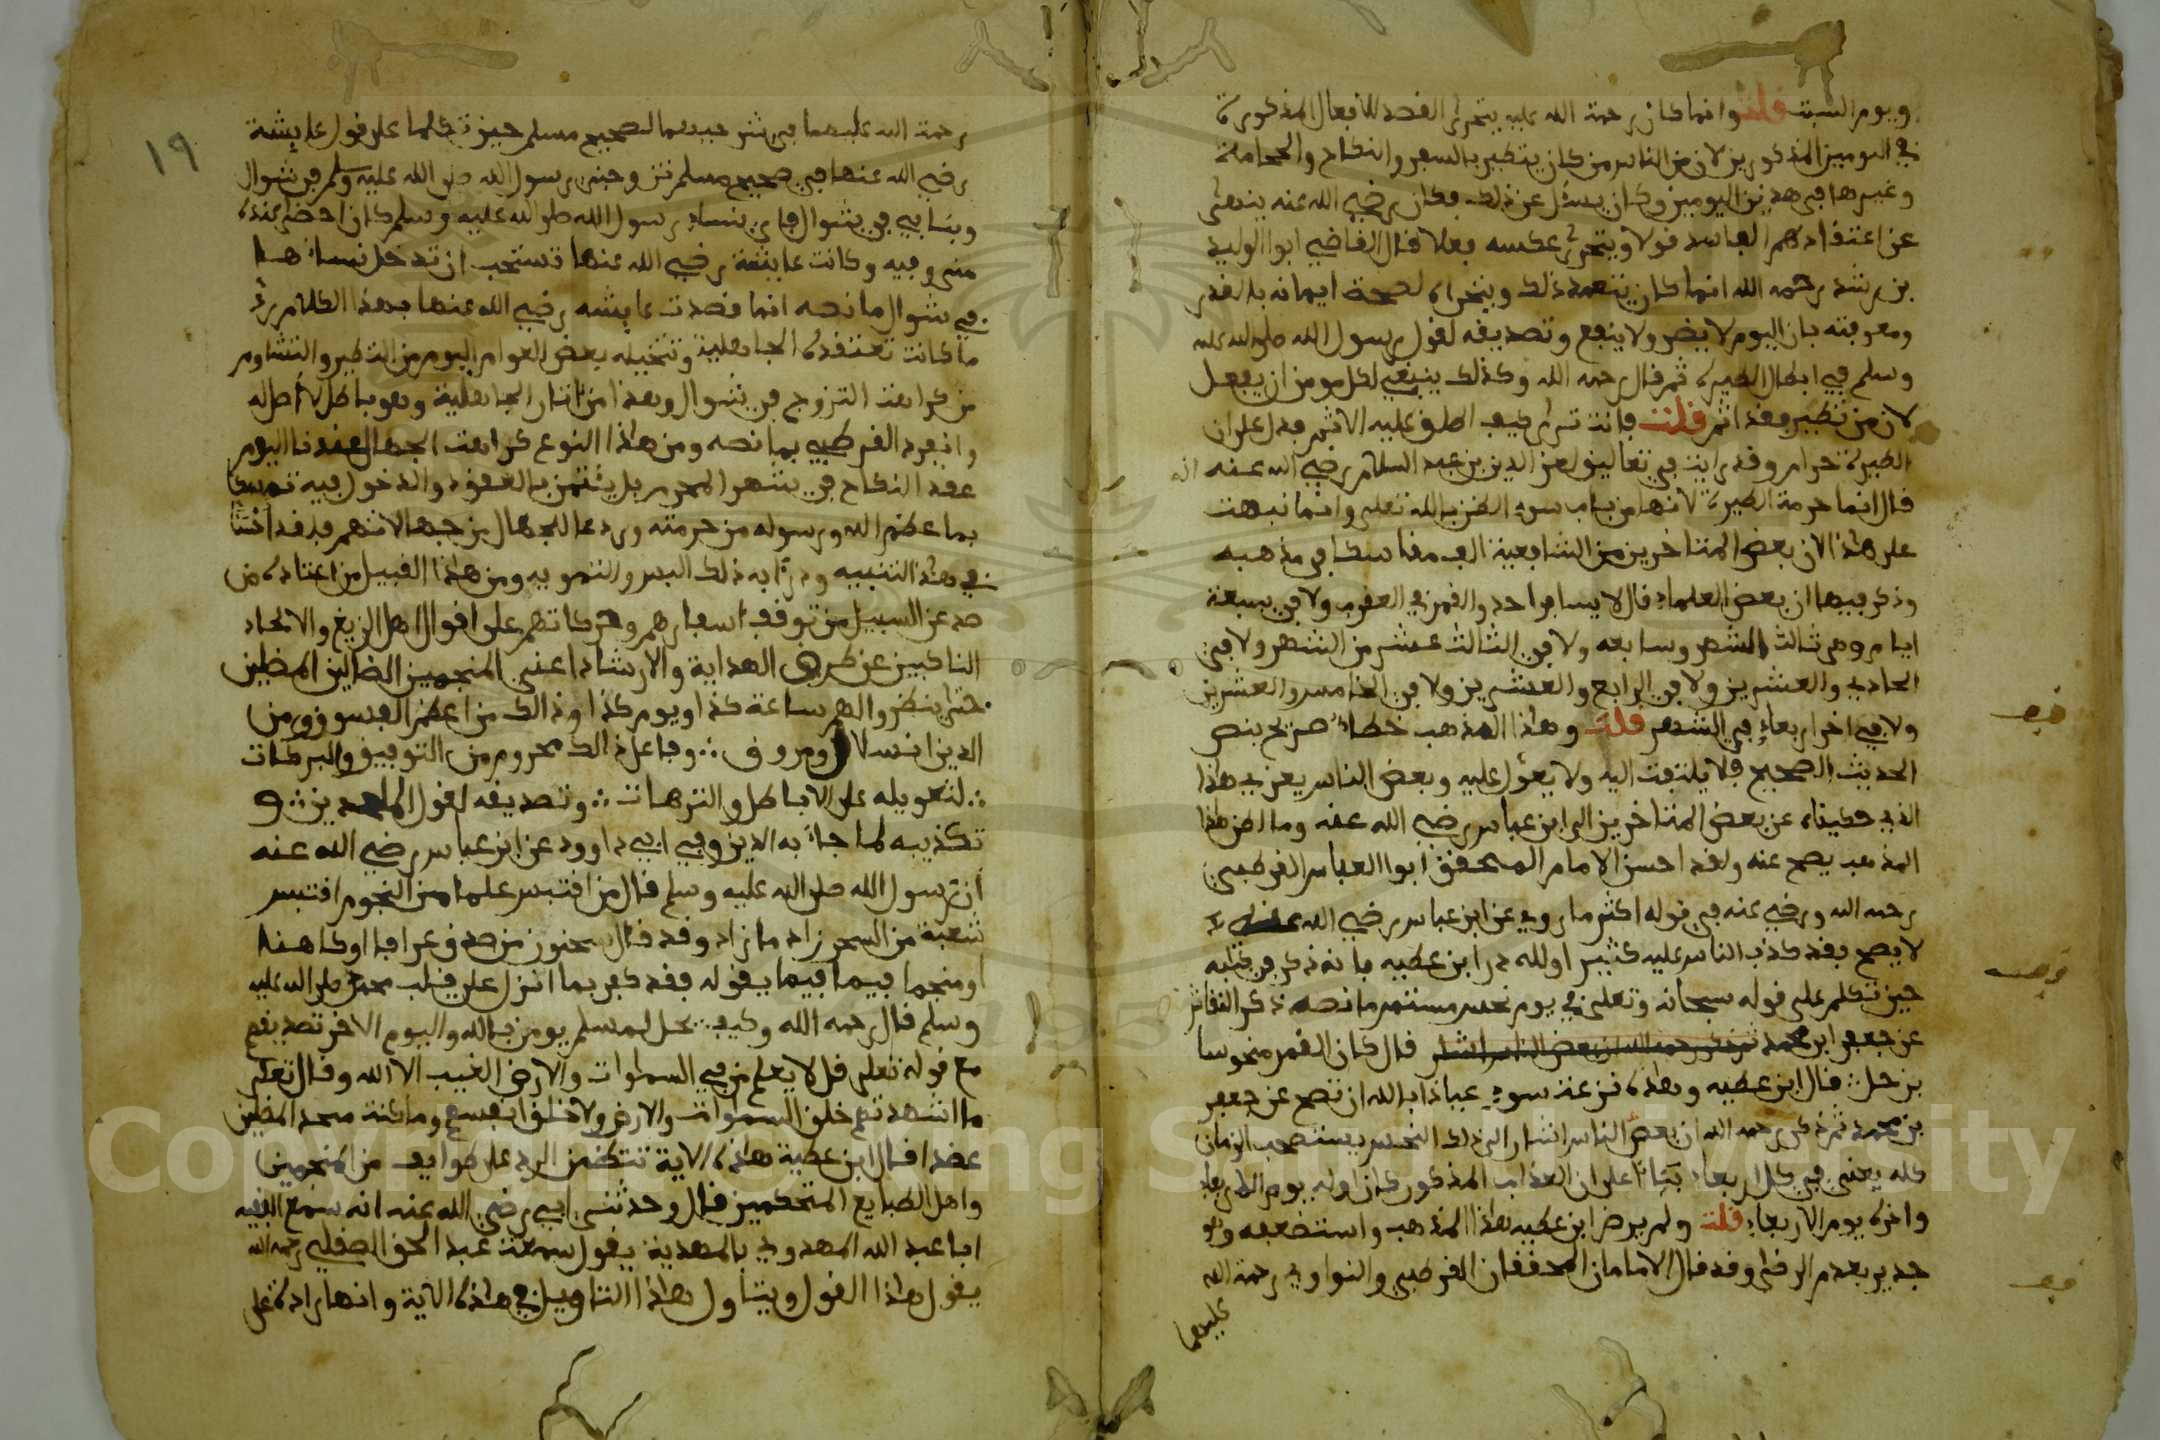 ويوم السبت قلت وانما كان رحمة الله عليه يتحرى القصد للافعال المذكورة
في اليومين المذكورين لان من الناس من كان يتطير بالسفر والنكاح والحجامة
وغيرها في هذين اليومين وكان يسئل عن ذلك فكان رضي الله عنه ينهى
عن اعتقادهم الفاسد قولا ويتحرى عكسه فعلا قال القاضي ابوا الوليد
بن رشد رحمه الله انما كان يتعمد ذلك ويتحراه لصحة ايمانه بالقدر
ومعرفته بان اليوم لا يضر ولا ينفع وتصديقه لقول رسول الله صلى الله عليه
وسلم في ابطال الطيرة ثم قال رحمه الله وكذلك ينبغي لكل مومن ان يفعل
لان من تطير فقد اثم قلت فانت ترى كيف اطلق عليه الاثم فدل على ان
الطيرة حرام وقد رايت في تعاليق لعز الدين بن عبد السلام رضي الله عنه انه
قال انما حرمة الطيرة لانها من باب سوء الظن بالله تعلى وانما نبهت
على هذا لان بعض المتاخرين من الشافعية الف مناسكا في مذهبه
وذكر فيها ان بعض العلماء قال لا يسافر احد والقمر في العقرب ولا في سبعة
ايام وهي ثالث الشهر وسابعه ولا في الثالث عشر من الشهر ولا في
الحادي والعشرين ولا في الرابع والعشرين ولا في الخامس والعشرين
ولا في اخر اربعاء في الشهر قلت وهذا المذهب خطا صريح بنص
الحديث الصحيح فلا يلتفت اليه ولا يعول عليه وبعض الناس يعزي هذا
الذي حكيناه عن بعض المتاخرين الى ابن عباس رضي الله عنه وما اظن هذا
المذهب يصح عنه ولقد احسن الامام المحقق ابوا العباس القرطبي
رحمه الله ورضي عنه في قوله اكثر ما روي عن ابن عباس رضي الله عنه
لا يصح فقد كذب الناس عليه كثيرا ولله در ابن عطيه فانه ذكر في كتابه
حين تكلم على قوله سبحانه وتعلى في يوم نحس مستمر ما نصه ذكر النقاش
عن جعفر ابن محمد ثم ذكر رحمه الله ان بعض الناس اشار قال كان القمر منحوسا
بزحل قال ابن عطيه وهذه نزعة سوء عياذا بالله ان تصح عن جعفر
بن محمد ثم ذكر رحمه الله ان بعض الناس اشار الى ذلك النحس يستصحب الزمان
كله يعني في كل اربعاء بناء على ان العذاب المذكور كان اوله يوم الاربعاء
واخره يوم الاربعاء قلت ولم يرض ابن عطيه هذا المذهب واستضعفه وهو
جدير بعدم الرضى وقد قال الامامان المحققان القرطبي والنواوي رحمة الله
عليهما
١٩
رحمة الله عليهما في شرحيهما لصحيح مسلم حين تكلما على قول عايشة
رضي الله عنها في صحيح مسلم تزوجني رسول الله صلى الله عليه وسلم في شوال
وبنا بي في شوال فاي نساء رسول الله صلى الله عليه وسلم كان احضى عنده
مني وفيه وكانت عايشة رضي الله عنها تستحب ان تدخل نساءها
في شوال ما نصه انما قصدت عايشه رضي الله عنها بهذا الكلام رد
ما كانت تعتقده الجاهلية وتتخيله بعض العوام اليوم من التطير والتشاوم
من كراهت التزوج في شوال وهذا من اثار الجاهلية وهو باطل لا اصل له
وانفرد القرطبي بما نصه ومن هذا النوع كراهت الجهال عندنا اليوم
عقد النكاح في شهر المحرم بل يتيمن بالعقود والدخول فيه تمسكا
بما عظم الله ورسوله من حرمته وردعا للجهال من جهالاتهم
في هذا التنبيه ودرا به ذلك اللبس والتمويه ومن هذا القبيل من اعتاده من
صد عن السبيل من توقف اسفارهم وحركاتهم على اقوال اهل الزيغ والالحاد
الناكبين عن طرق الهداية والارشاد اعني المنجمين الضالين المضلين
حتى ينظروا لهم ساعة كذا ويوم كذا وذالك من اعظم الفسوق ومن
الدين انسلال ومروق وفاعل ذالك محروم من التوفيق والبركات
لتعويله على الاباطل والترهات وتصديقه لقول الملحدين و
تكذيبه لما جاء به الدين وفي ابي داوود عن ابن عباس رضي الله عنه
ان رسول الله صلى الله عليه وسلم قال من اقتبس علما من النجوم اقتبس
شعبة من السحر زاد ما زاد وقد قال سحنون من صدق عرافا او كاهنا
او منجما فيما فيما يقوله فقد كفر بما انزل على قلب محمد صلى الله عليه
وسلم قال رحمه الله وكيف يحل لمسلم يومن بالله واليوم الاخر تصديقهم
مع قوله تعلى قل لا يعلم من في السماوات والارض الغيب الا الله وقال تعلى
ما اشهدتهم خلق السماوات والارض ولا خلق انفسهم وما كنت متخد المظلين
عضدا قال ابن عطية هذه الاية تتضمن الرد على طوايف من المنجمين
واهل الطبايع المتحكمين قال وحدثني ابي رضي الله عنه انه سمع الفقيه
ابا عبد الله المهدوي بالمهدية يقول سمعت عبد الحق الصقلي رحمه الله
يقول هذا القول ويتاول هذا التاويل في هذه الآية وانها رادة على
Copyright © King Saud University
1957